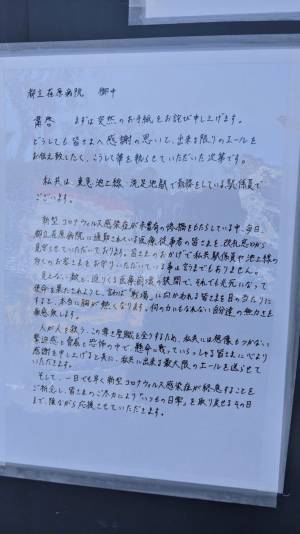 都立荏原病院 御中
粛啓 まずは突然のお手紙をお詫び申し上げます。
どうしても皆さまへ感謝の思いで、出来る限りのエールを
お伝え致したく、こうして筆を執らせていただいた次第です。
私共は、東急池上線、洗足池駅で勤務をしている駅係員で
ございます。
新型コロナウィルス感染症が未曽有の惨禍をもたらしている中、毎日、
都立荏原病院に通勤されている医療従事者の皆さまを、改札窓口から
見守らせていただいております。皆さまのおかげで私共駅係員や池上線の
多くのお客さまをお守りいただいている事は言うまでもありません。
見えない敵と、迫りくる医療崩壊の狭間で、それでも気丈になって
使命を果たされようと、言わば「戦場」に向かわれる皆さまを目の当たりに
すると、本当に胸が熱くなります。何の力にもなれない自分達の無力さを
痛感致します。
人が人を救う。この尊き聖職を全うするため、私共には想像もつかない
緊迫感と責務と恐怖の中で、懸命に戦っていらっしゃる皆さまに心より
感謝を申し上げると共に、私共に出来る最大限のエールを送らせて
いただきます。
そして、一日も早く新型コロナウィルス感染症が終息することを
ご祈念し、皆さまのご尽力により「いつもの日常」を取り戻せるその日
まで、陰ながら応援させていただきます。